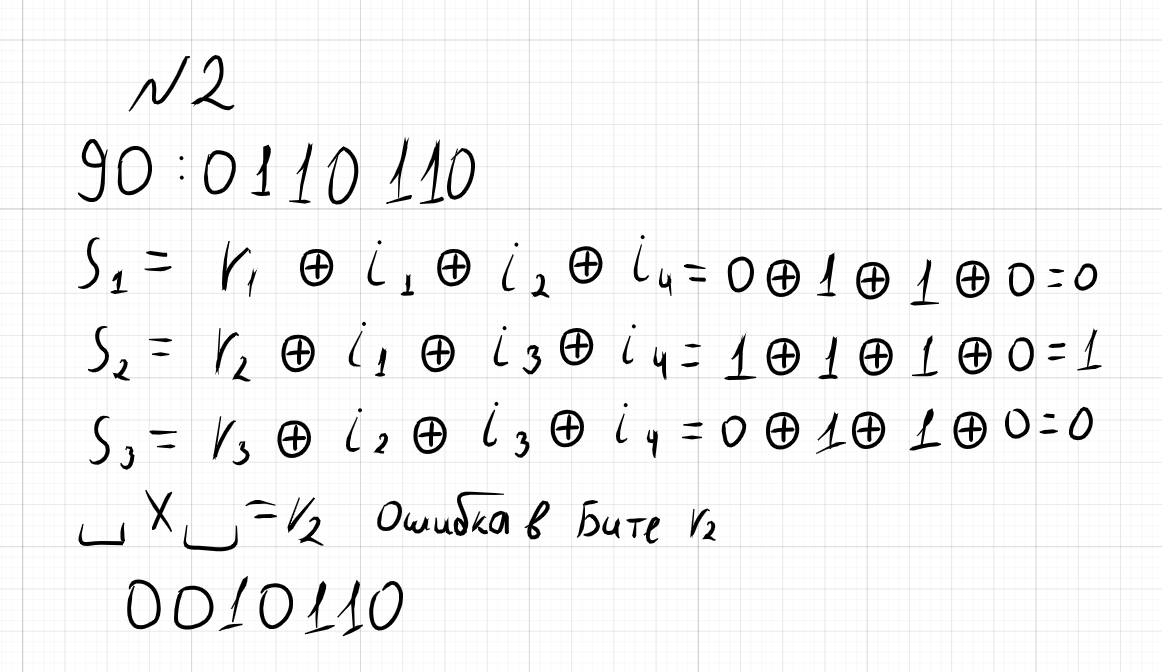 №2
90 : 0110110
S₁ = r₁ ⊕ i₁ ⊕ i₂ ⊕ i₄ = 0 ⊕ 1 ⊕ 1 ⊕ 0 = 0
S₂ = r₂ ⊕ i₁ ⊕ i₃ ⊕ i₄ = 1 ⊕ 1 ⊕ 1 ⊕ 0 = 1
S₃ = r₃ ⊕ i₂ ⊕ i₃ ⊕ i₄ = 0 ⊕ 1 ⊕ 1 ⊕ 0 = 0
⎵ X ⎵ = r₂ Ошибка в Бите r₂
0010110